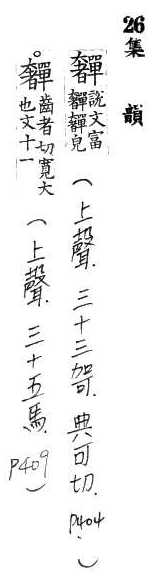 26集韻
奲說文富奲奲皃(上聲.三十三哿.典可切.P404.)
。奲齒者切寬大也文十一(上聲.三十五馬.P409)